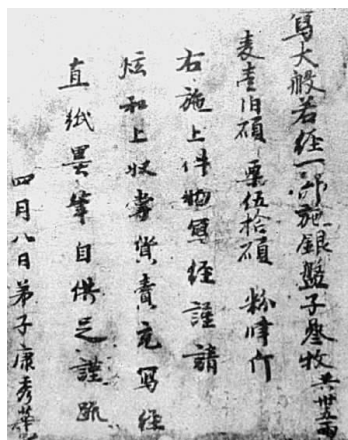 寫大般若經一部施銀盤子叁枚共卅五兩
麦壹伯碩 粟伍拾碩 粉肆斤
右施上件物寫經謹請
炫和上收掌貨賣充寫經
直紙墨筆自供足謹疏
四月八日弟子康秀華